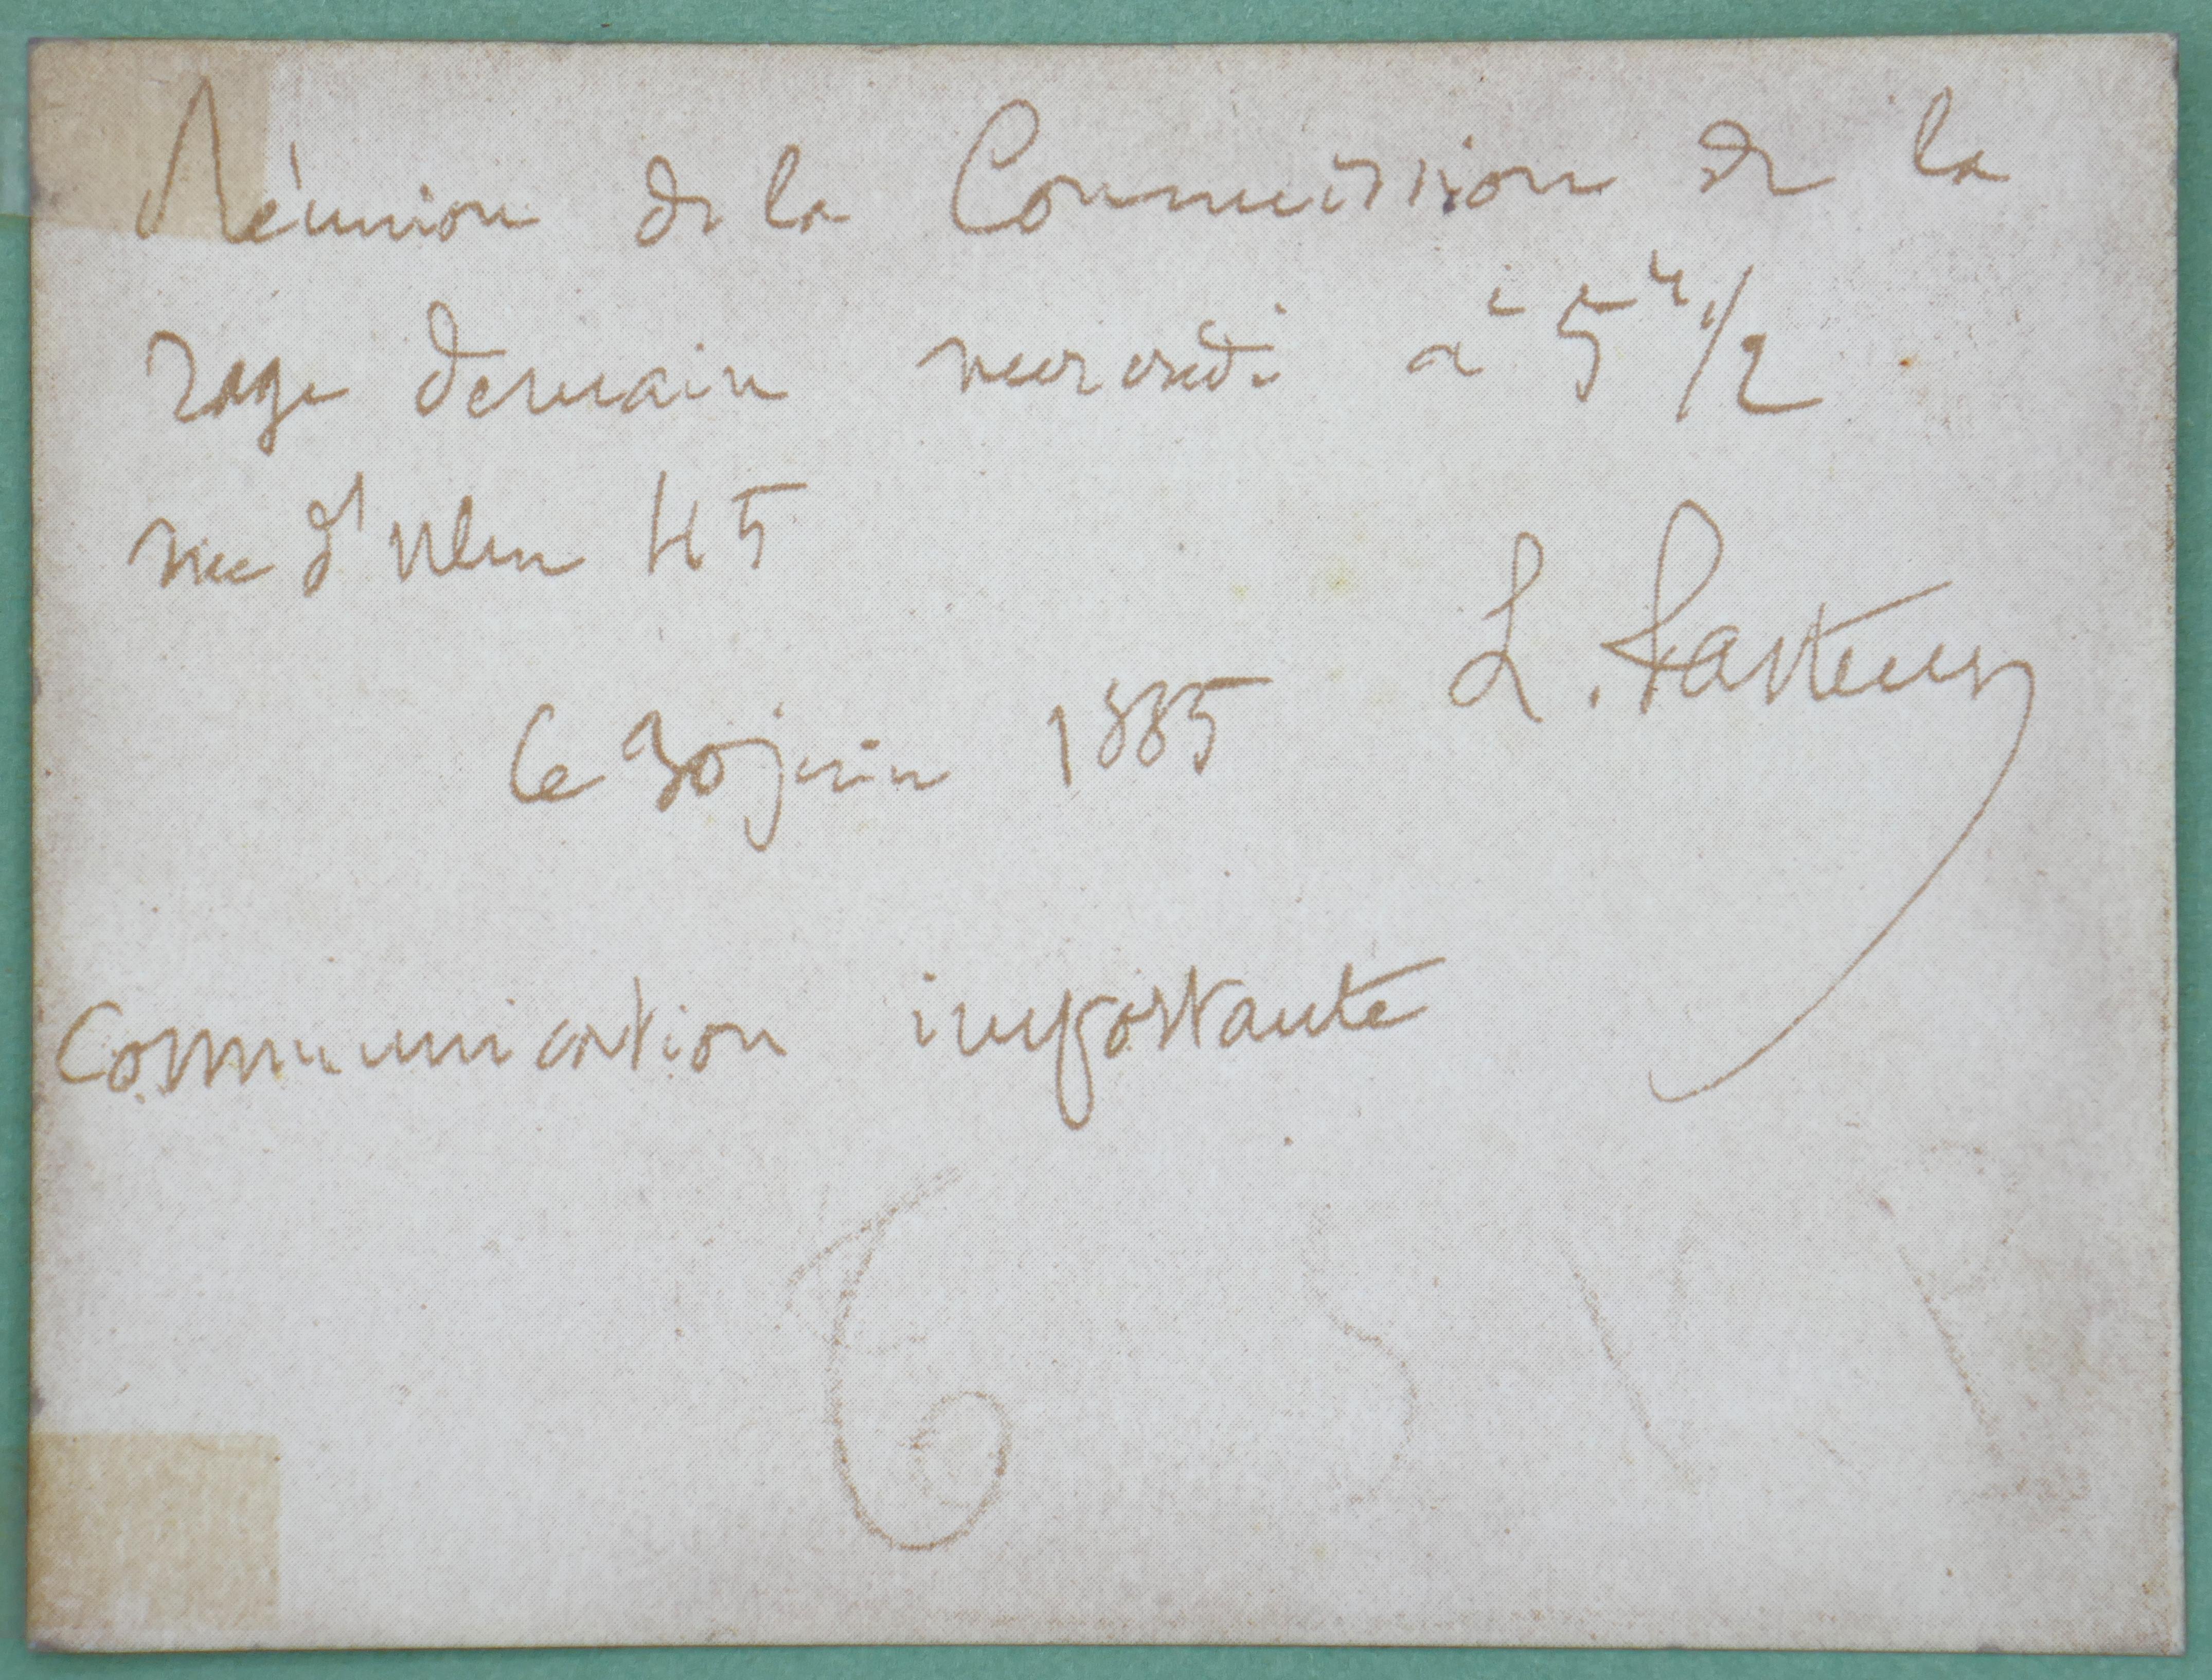 Réunion de la Commission de la
rage demain mercredi à 5h 1/2
rue d'Ulm 45
L. Pasteur
Le 30 juin 1885
Communication importante